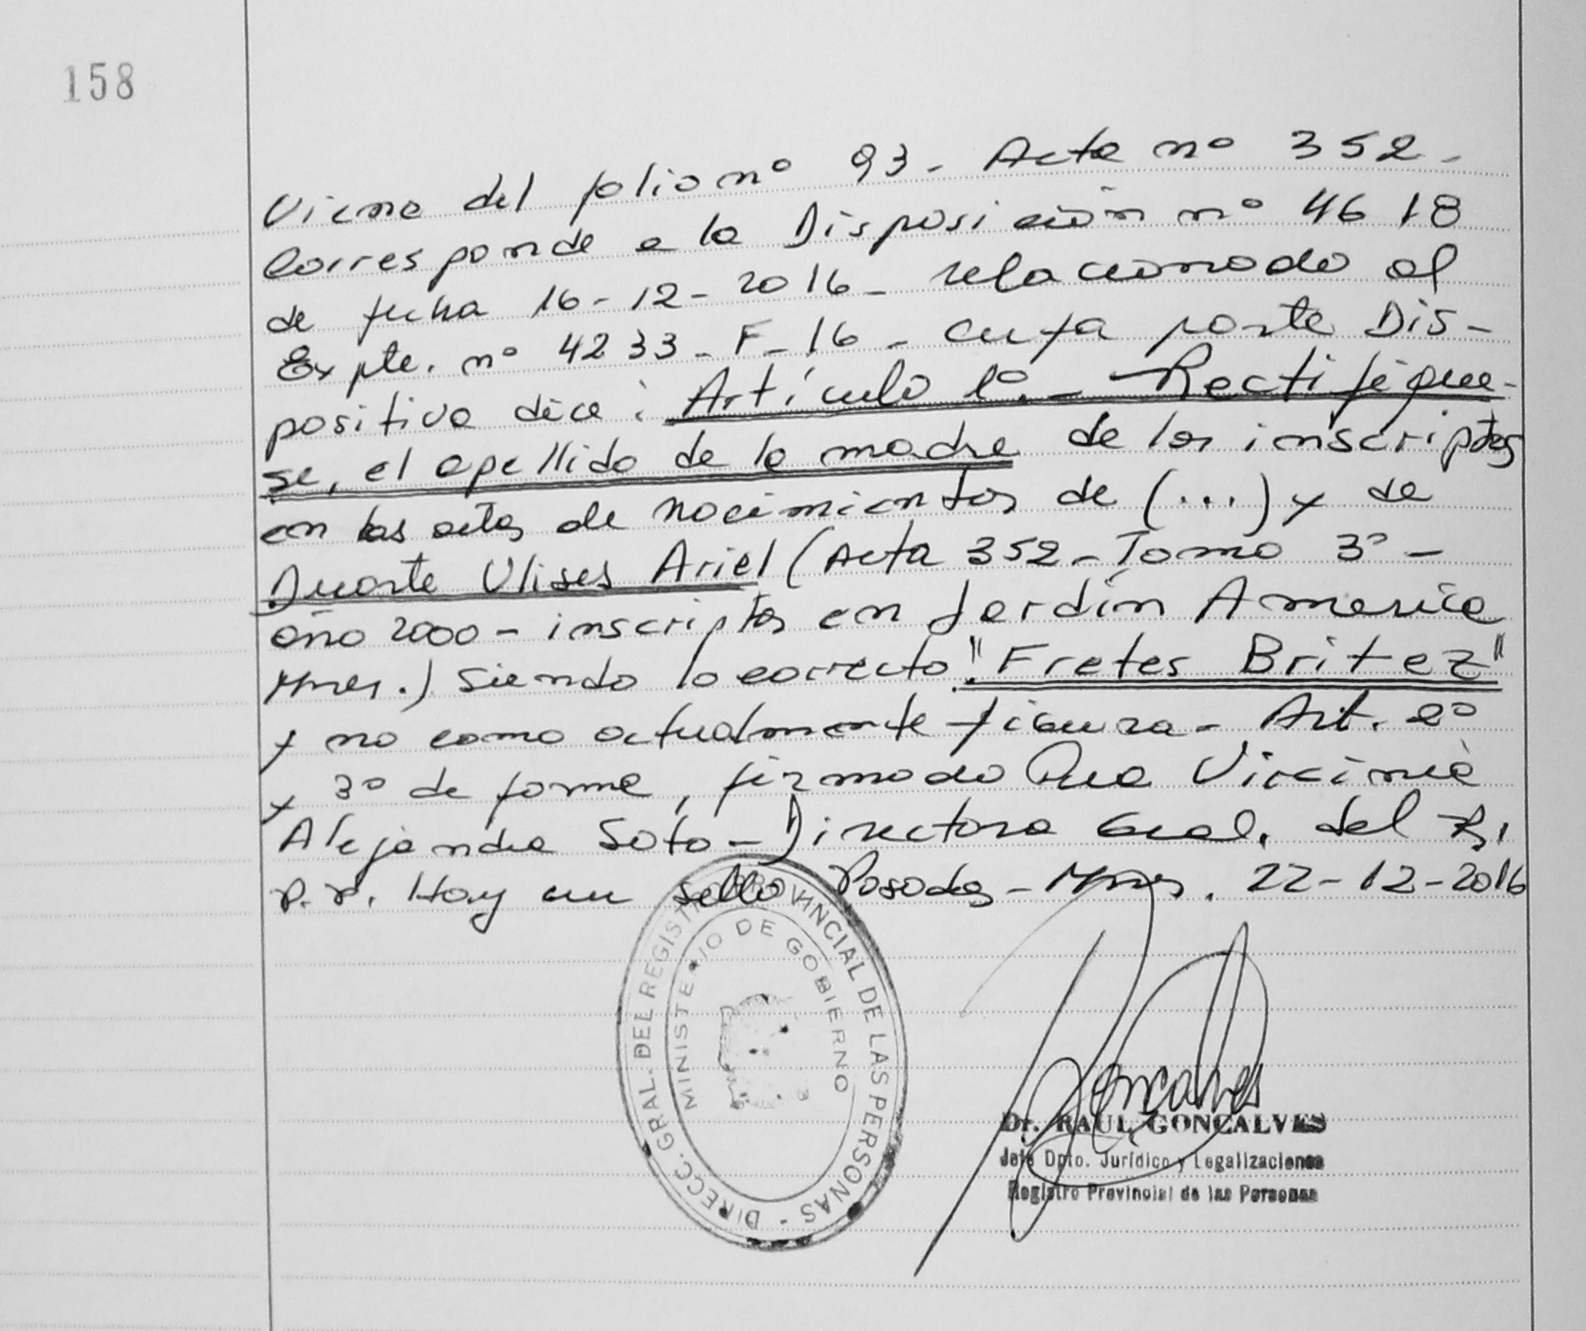 158
Viene del folio nº 93 - Acta nº 352 -
Corresponde a la Disposición nº 4618
de fecha 16-12-2016 - relacionado al
Expte. nº 4233 - F - 16 - cuya parte Dis-
positiva dice: Artículo 1º.- Rectifíque-
se, el apellido de la madre de los inscriptos
en las actas de nacimientos de (...) y de
Duarte Ulises Ariel (Acta 352 - Tomo 3º -
año 2000 - inscriptos en Jardín America
Mnes.) Siendo lo correcto "Fretes Britez"
y no como actualmente figura - Art. 2º
y 3º de forma, firmado Ana Virginia
Alejandra Soto - Directora Gral. del R.
P. P. Hay un sello Posadas - Mnes. 22-12-2016
DIRECC. GRAL. DEL REGISTRO PROVINCIAL DE LAS PERSONAS -
MINISTERIO DE GOBIERNO
Goncalves
Dr. RAUL GONCALVES
Jefe Dpto. Jurídico y Legalizaciones
Registro Provincial de las Personas